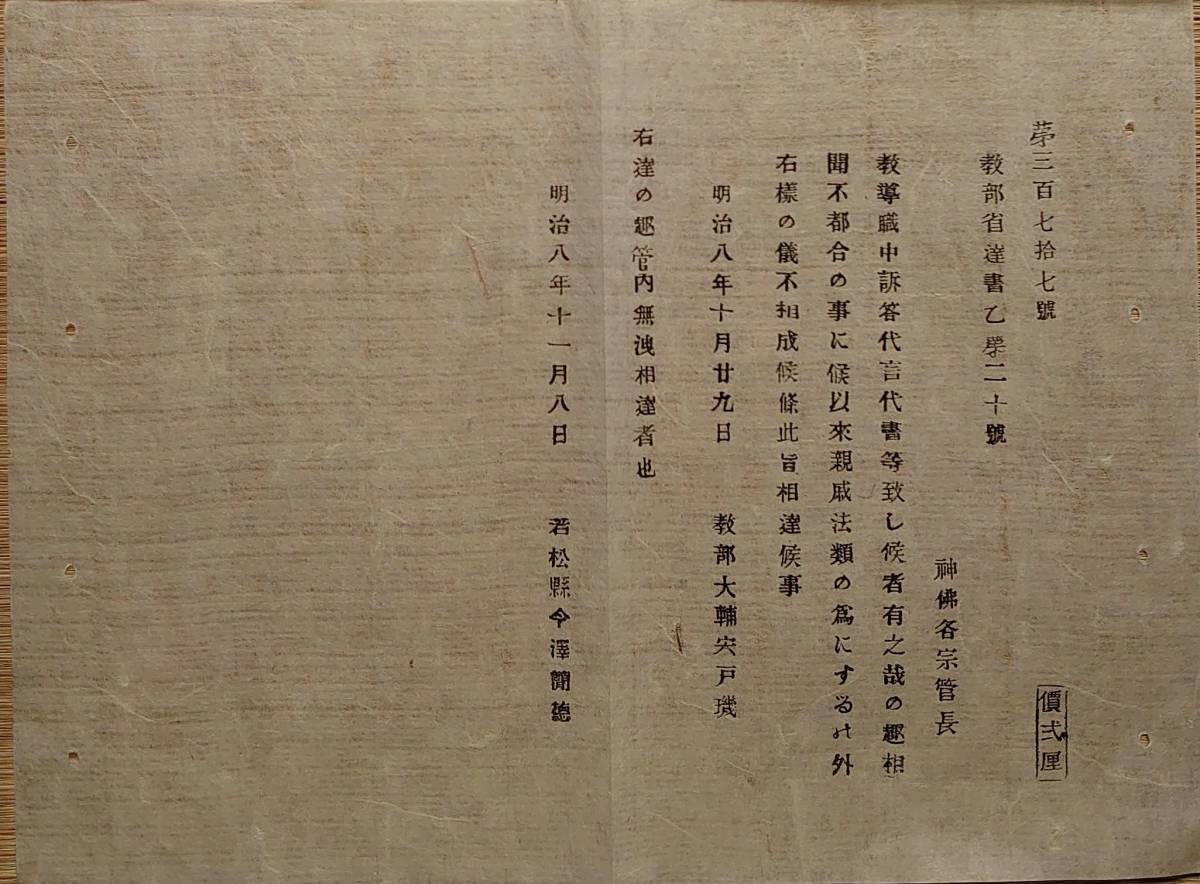 苐三百七拾七號
價弍厘
教部省達書乙苐二十號
神佛各宗管長
教導職中訴答代言代書等致し候者有之哉の趣相
聞不都合の事に候以來親戚法類の爲にするの外
右樣の儀不相成候條此旨相達候事
明治八年十月廿九日　教部大輔宍戸璣
右達の趣管内無洩相達者也
明治八年十一月八日　若松縣令澤簡德